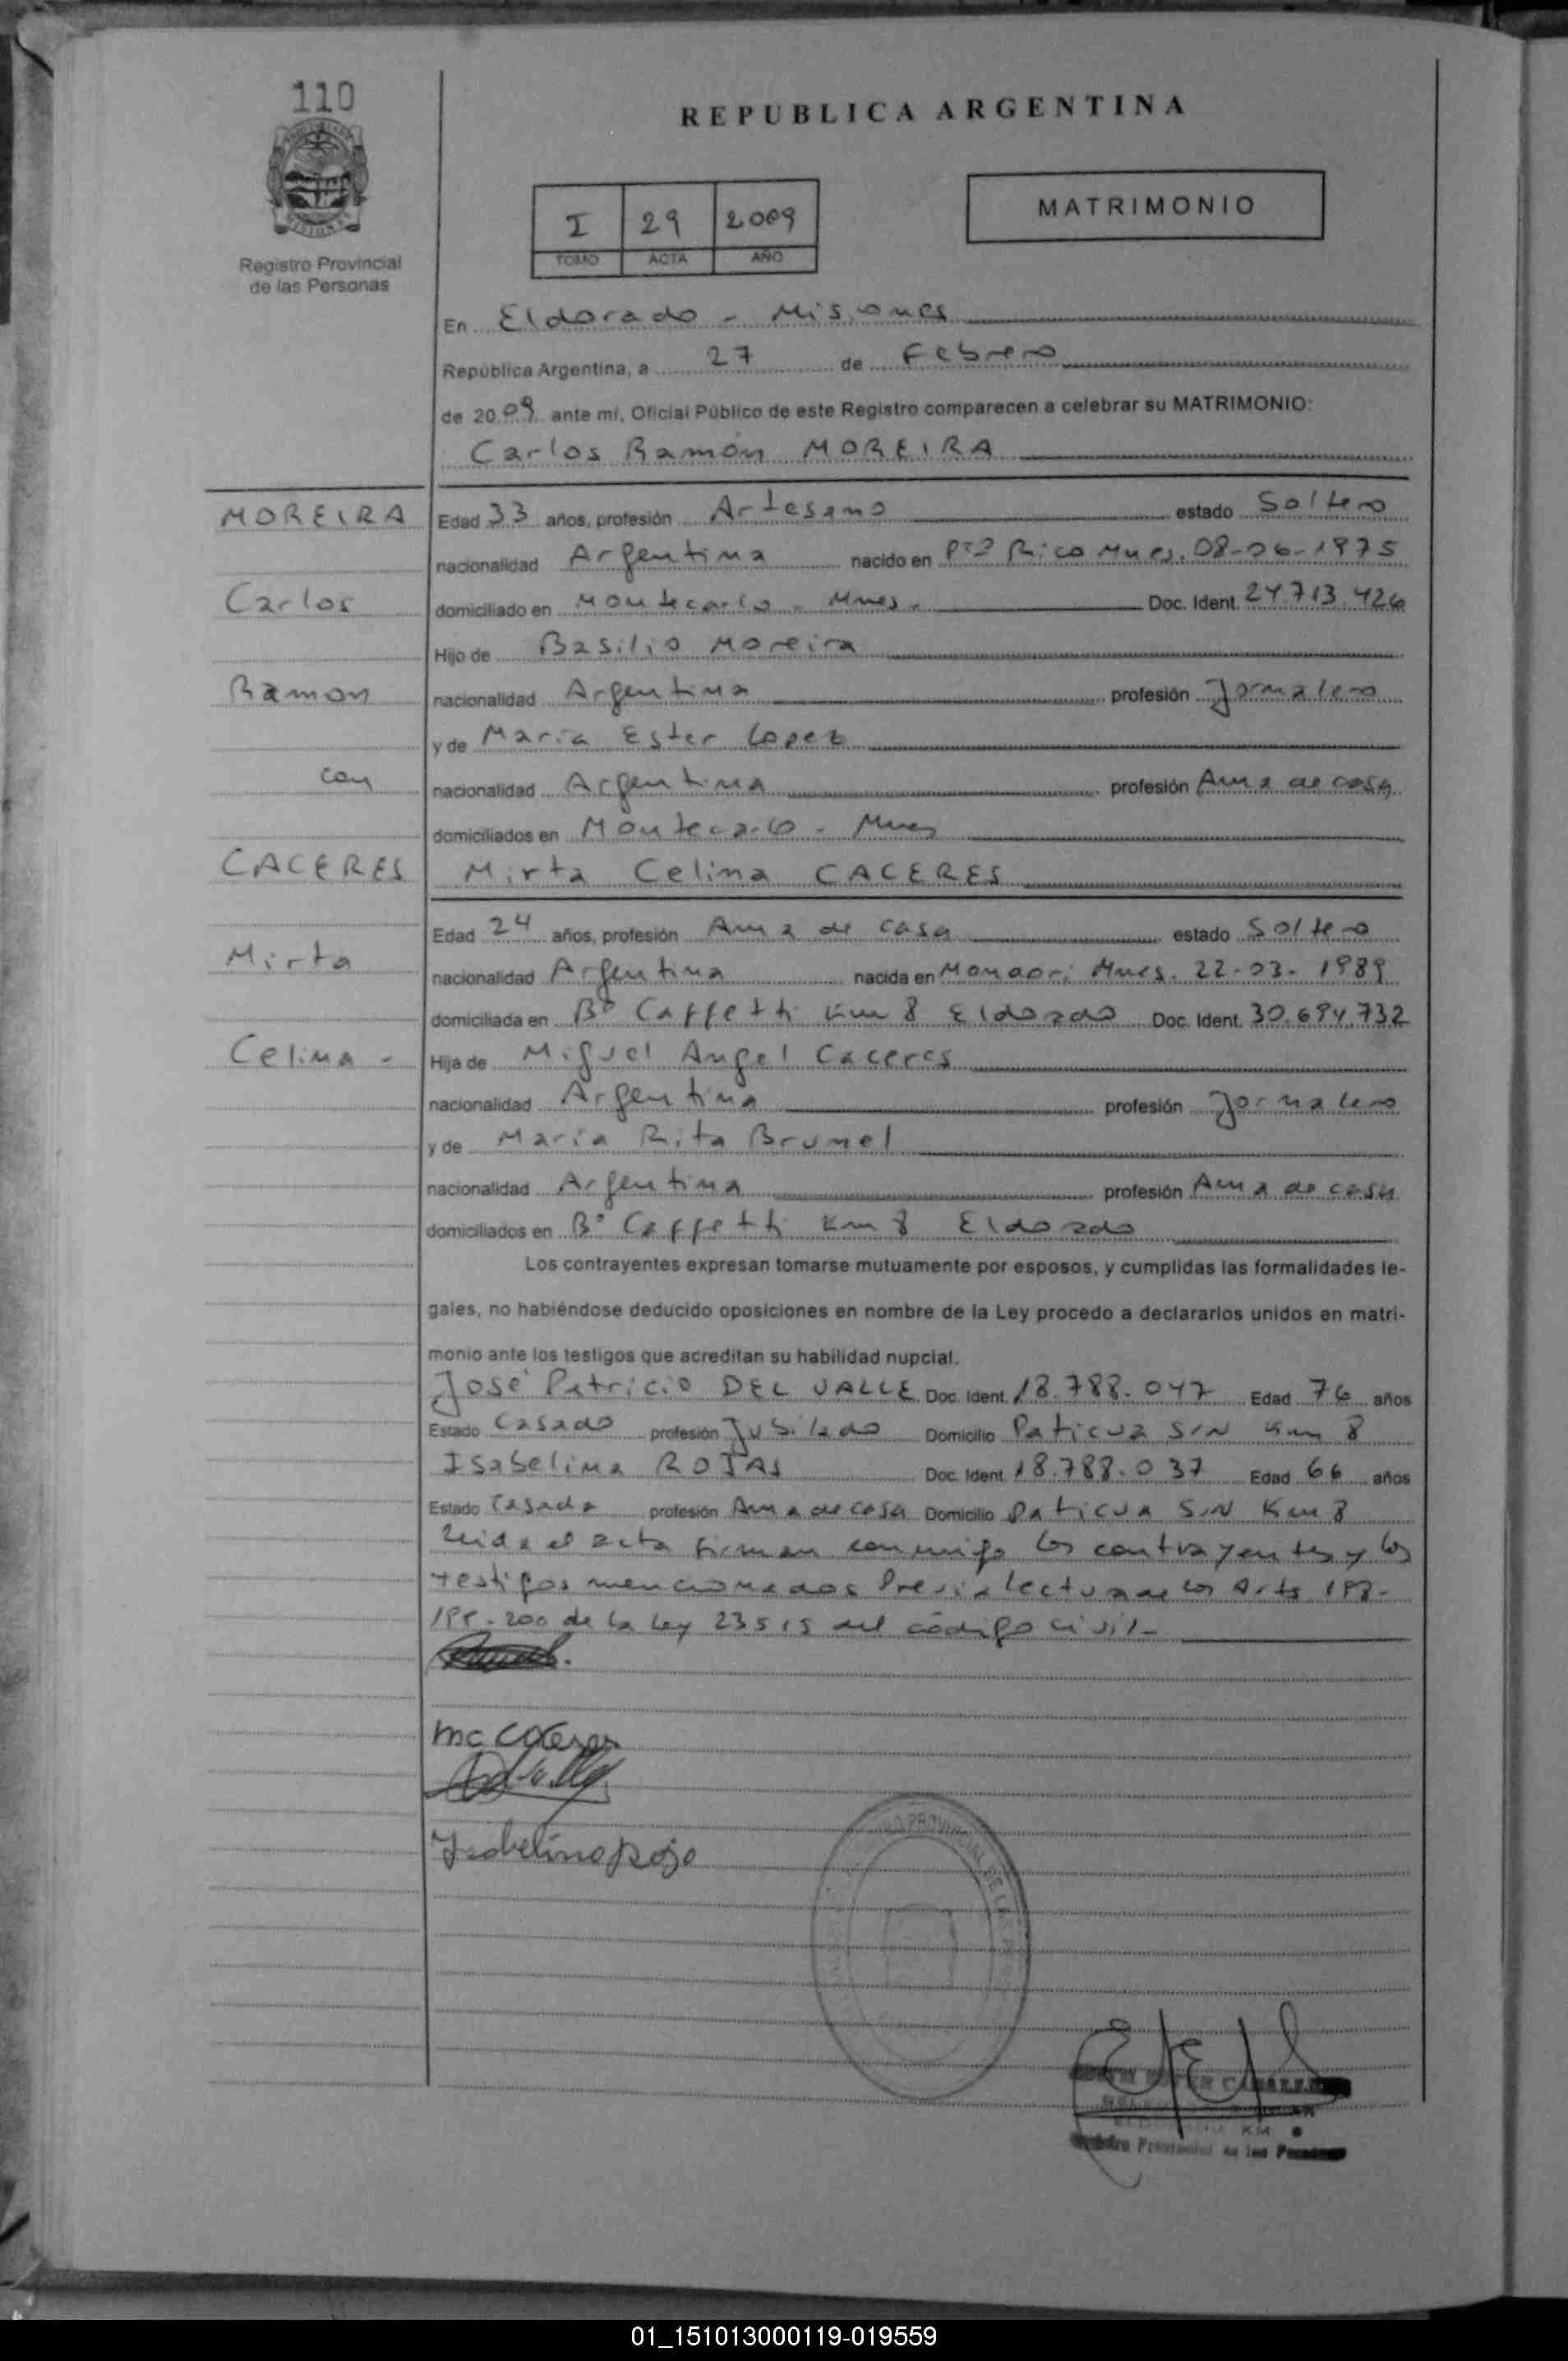 110
REPUBLICA ARGENTINA
I 29 2009
TOMO ACTA AÑO
MATRIMONIO
Registro Provincial
de las Personas
En Eldorado - Misiones
República Argentina, a 27 de Febrero
de 2009 ante mí, Oficial Público de este Registro comparecen a celebrar su MATRIMONIO:
Carlos Ramón MOREIRA
MOREIRA Edad 33 años, profesión Artesano estado Soltero
nacionalidad Argentina nacido en Pto Rico Mnes. 08-06-1975
Carlos domiciliado en Montecarlo - Mnes. Doc. Ident. 24.713.426
Hijo de Basilio Moreira
Ramon nacionalidad Argentina profesión Jornalero
y de Maria Ester Lopez
con nacionalidad Argentina profesión Ama de casa
domiciliados en Montecarlo - Mnes
CACERES Mirta Celina CACERES
Edad 24 años, profesión Ama de casa estado Soltero
Mirta nacionalidad Argentina nacida en Mnes. 22-03-1989
domiciliada en B° Caffetti Km 8 Eldorado Doc. Ident. 30.694.732
Celina - Hija de Miguel Angel Caceres
nacionalidad Argentina profesión Jornalero
y de María Rita Brunel
nacionalidad Argentina profesión Ama de casa
domiciliados en B° Caffetti Km 8 Eldorado
Los contrayentes expresan tomarse mutuamente por esposos, y cumplidas las formalidades le-
gales, no habiéndose deducido oposiciones en nombre de la Ley procedo a declararlos unidos en matri-
monio ante los testigos que acreditan su habilidad nupcial.
José Patricio DEL VALLE Doc. Ident. 18.788.047 Edad 76 años
Estado Casado profesión Jubilado Domicilio Paticua S/N Km 8
Isabelina ROJAS Doc. Ident. 18.788.037 Edad 66 años
Estado Casada profesión Ama de casa Domicilio Paticua S/N Km 8
Leida el acta firman conmigo los contrayentes y los
testigos mencionados Previa lectura de los Arts 198-
199-200 de la Ley 23515 del código civil-
mc caceres
Isabelina Roja
KM
Registro Provincial de las Personas
01_151013000119-019559